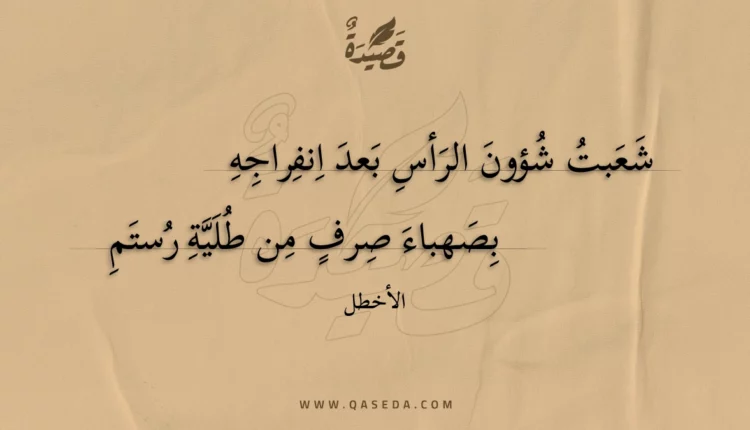 قَصِيْدَةٌ
شَعَبتُ شُؤونَ الرَأسِ بَعدَ اِنفِراجِهِ
بِصَهباءَ صِرفٍ مِن طُلَيَّةِ رُستَمِ
الأخطل
WWW.QASEDA.COM